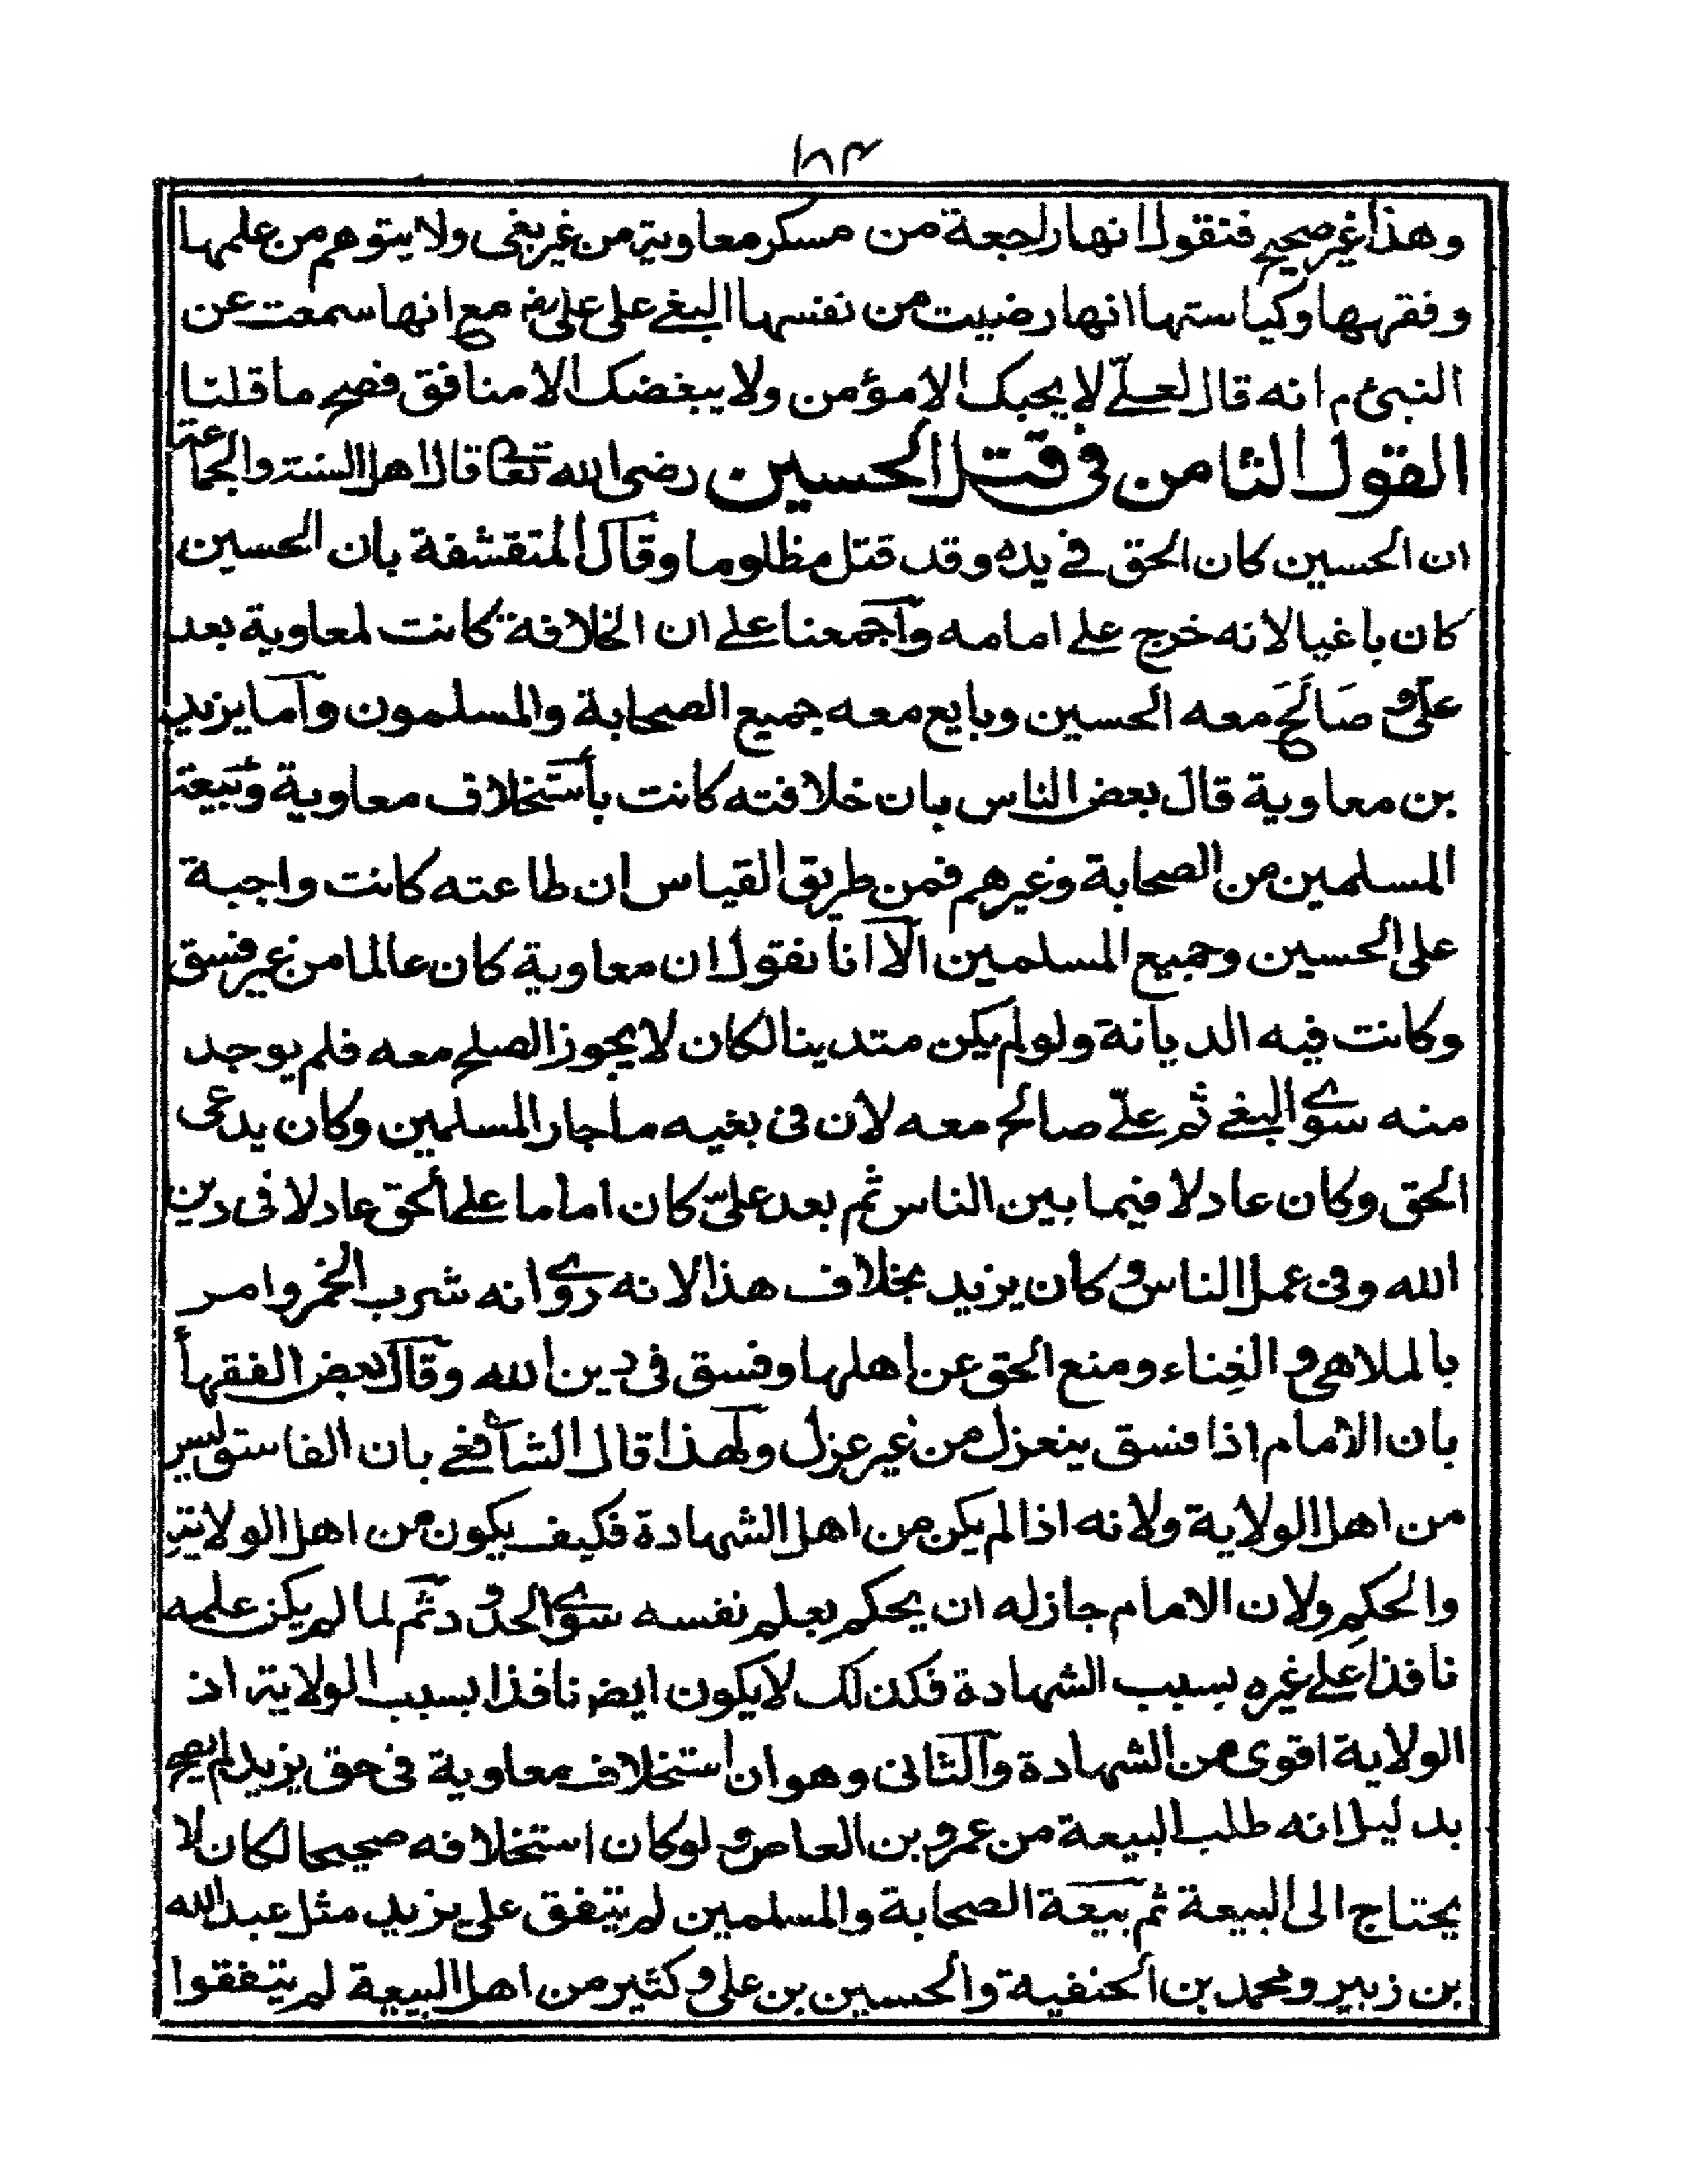 ١٨٣
وهذا غير صحيح فنقول انها راجعة من مسكر معاوية من غير بغى ولا يتوهم من علمها
وفقهها وكياستها انها رضيت من نفسها البغے على على رضہ مع انها سمعت عن
النبى م انه قال لعلىّ لا يحبك الا مؤمن ولا يبغضك الا منافق فصح ما قلنا
القول الثامن فى قتل الحسين رضى الله تعا قال اهل السنة والجماعة
ان الحسين كان الحق فے يده وقد قتل مظلوما وقال المتقشفة بان الحسين
كان باغيا لانه خرج علے امامه واجمعنا علے ان الخلافة كانت لمعاوية بعد
علىّ وصَالَحَ معه الحسين وبايع معه جميع الصحابة والمسلمون واما يزيد
بن معاوية قال بعض الناس بان خلافته كانت بأستخلاف معاوية وبيعة
المسلمين من الصحابة وغيرهم فمن طريق القياس ان طاعته كانت واجبة
على الحسين وجميع المسلمين الا انا نقول ان معاوية كان عالما من غير فسق
وكانت فيه الديانة ولو لم يكن متدينا لكان لا يجوز الصلح معه فلم يوجد
منه سوے البغے ثم علىّ صالح معه لان فى بغيه ما جار المسلمين وكان يدعى
الحق وكان عادلا فيما بين الناس ثم بعد علىّ كان اماما علے الحق عادلا فى دين
الله وفى عمل الناس وكان يزيد بخلاف هذا لانه روے انه شرب الخمر وامر
بالملاهى و الغِناء ومنع الحق عن اهلها وفسق فى دين الله وقال بعض الفقهأ
بان الامام اذا فسق ينعزل من غير عزل ولهذا قال الشافعے بان الفاسق ليس
من اهل الولاية ولانه اذا لم يكن من اهل الشهادة فكيف يكون من اهل الولاية
والحكم ولان الامام جاز له ان يحكم بعلم نفسه سوے الحدود ثم لما لم يكن علمه
نافذا علے غيره بسبب الشهادة فكذلك لا يكون ايض نافذا بسبب الولاية اذ
الولاية اقوى من الشهادة والثانى وهو ان استخلاف معاوية فى حق يزيد لم يصح
بدليل انه طلب البيعة من عمرو بن العاص ولو كان استخلافه صحيحا لكان لا
يحتاج الى البيعة ثم بيعة الصحابة والمسلمين لم يتفق على يزيد مثل عبد الله
بن زبير ومحمد بن الحنفية والحسين بن على وكثير من اهل البيعة لم يتفقوا